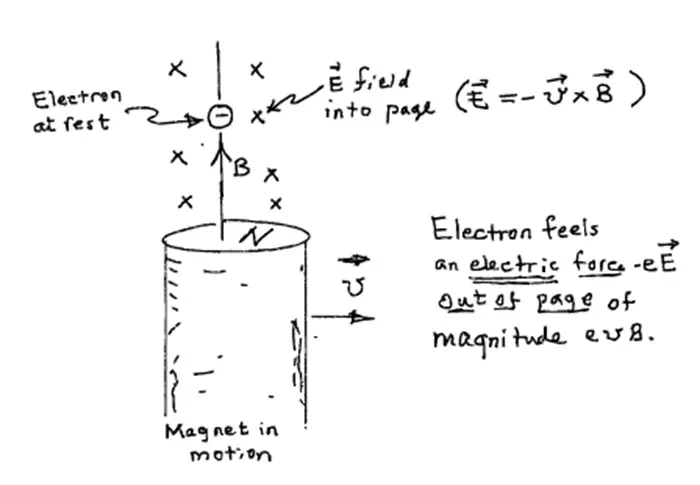 Electron
at rest
x x
x
x
x
x x
−
B
N
E⃗ field
into page
(E⃗ = - v⃗ x B⃗ )
v⃗
Electron feels
an electric force -eE⃗
out of page of
magnitude evB.
Magnet in
motion